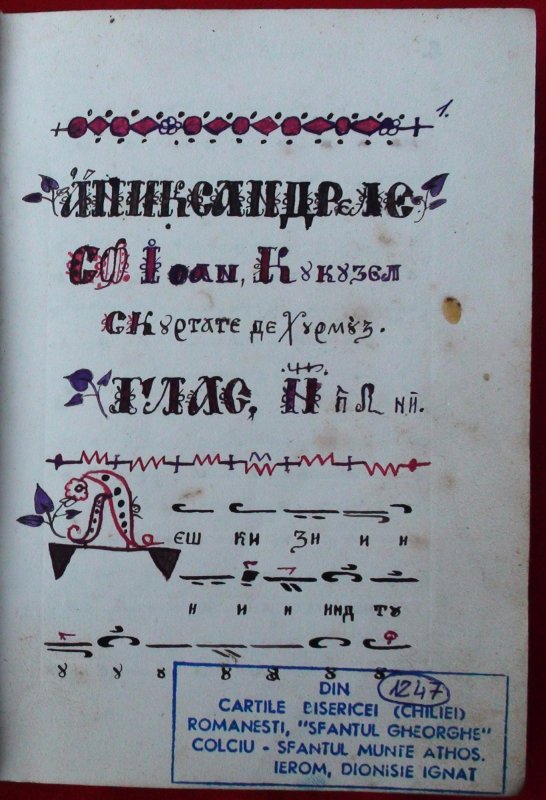 1.
АНИКСАНДРЕЛЕ
СФ. Іоан, Кукузел
скуртате де Хурмуз.
ГЛАС,
Деш ки зи и и
и и и инд ту
у у у у у у у
DIN 1247
CARTILE BISERICEI (CHILIEI)
ROMANESTI, "SFANTUL GHEORGHE"
COLCIU - SFANTUL MUNTE ATHOS.
IEROM, DIONISIE IGNAT